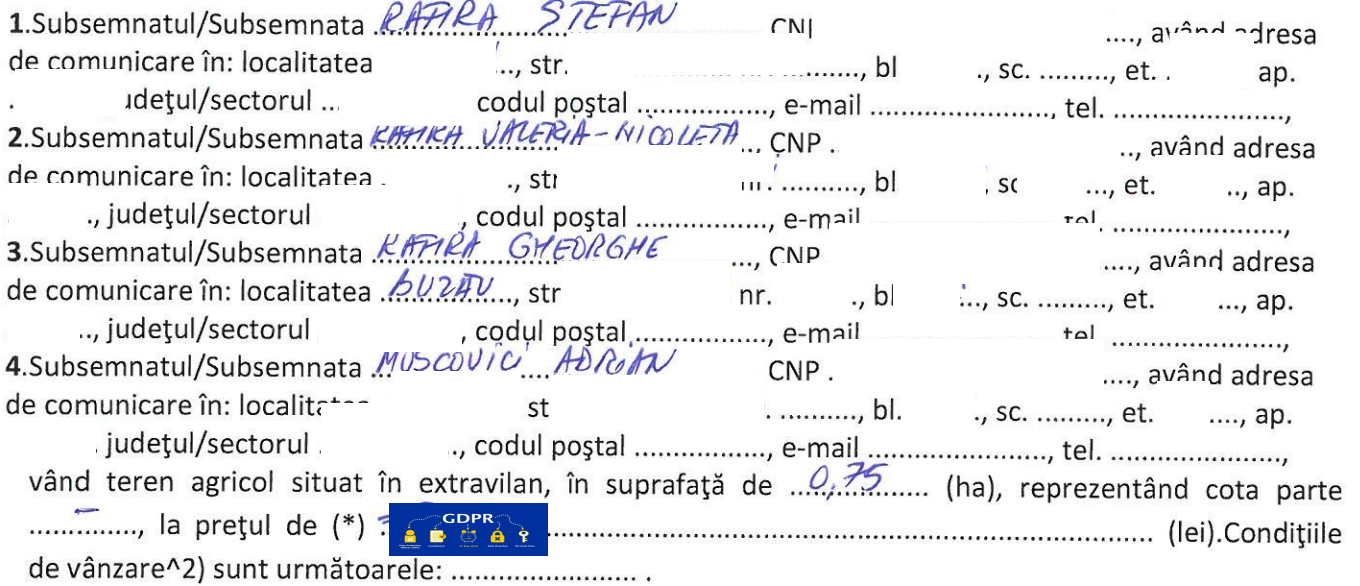 1.Subsemnatul/Subsemnata RAFIRA STEFAN CNI ...., având adresa
de comunicare în: localitatea .., str. .............., bl ., sc. ........., et. . ap.
. udeţul/sectorul ... codul poştal ................., e-mail ......................, tel. ......................,
2.Subsemnatul/Subsemnata RAFIRA VALERIA-NICOLETA... CNP . .., având adresa
de comunicare în: localitatea . ., str ........., bl , sc ..., et. .., ap.
., judeţul/sectorul , codul poştal ................., e-mail tel. ......................,
3.Subsemnatul/Subsemnata RAFIRA GHEORGHE ..., CNP ...., având adresa
de comunicare în: localitatea BUZĂU......, str nr. ., bl ..., sc. ........., et. ..., ap.
.., judeţul/sectorul , codul poştal ................., e-mail tel ......................,
4.Subsemnatul/Subsemnata MUSCOVICI ADRIAN CNP . ...., având adresa
de comunicare în: st . .........., bl. ., sc. ........., et. ...., ap.
. judeţul/sectorul . ., codul poştal ................., e-mail ......................, tel. ......................,
vând teren agricol situat în extravilan, în suprafaţă de 0,75 (ha), reprezentând cota parte
......–......, la preţul de (*) . GDPR .................................................................. (lei).Condiţiile
de vânzare^2) sunt următoarele: ........................ .